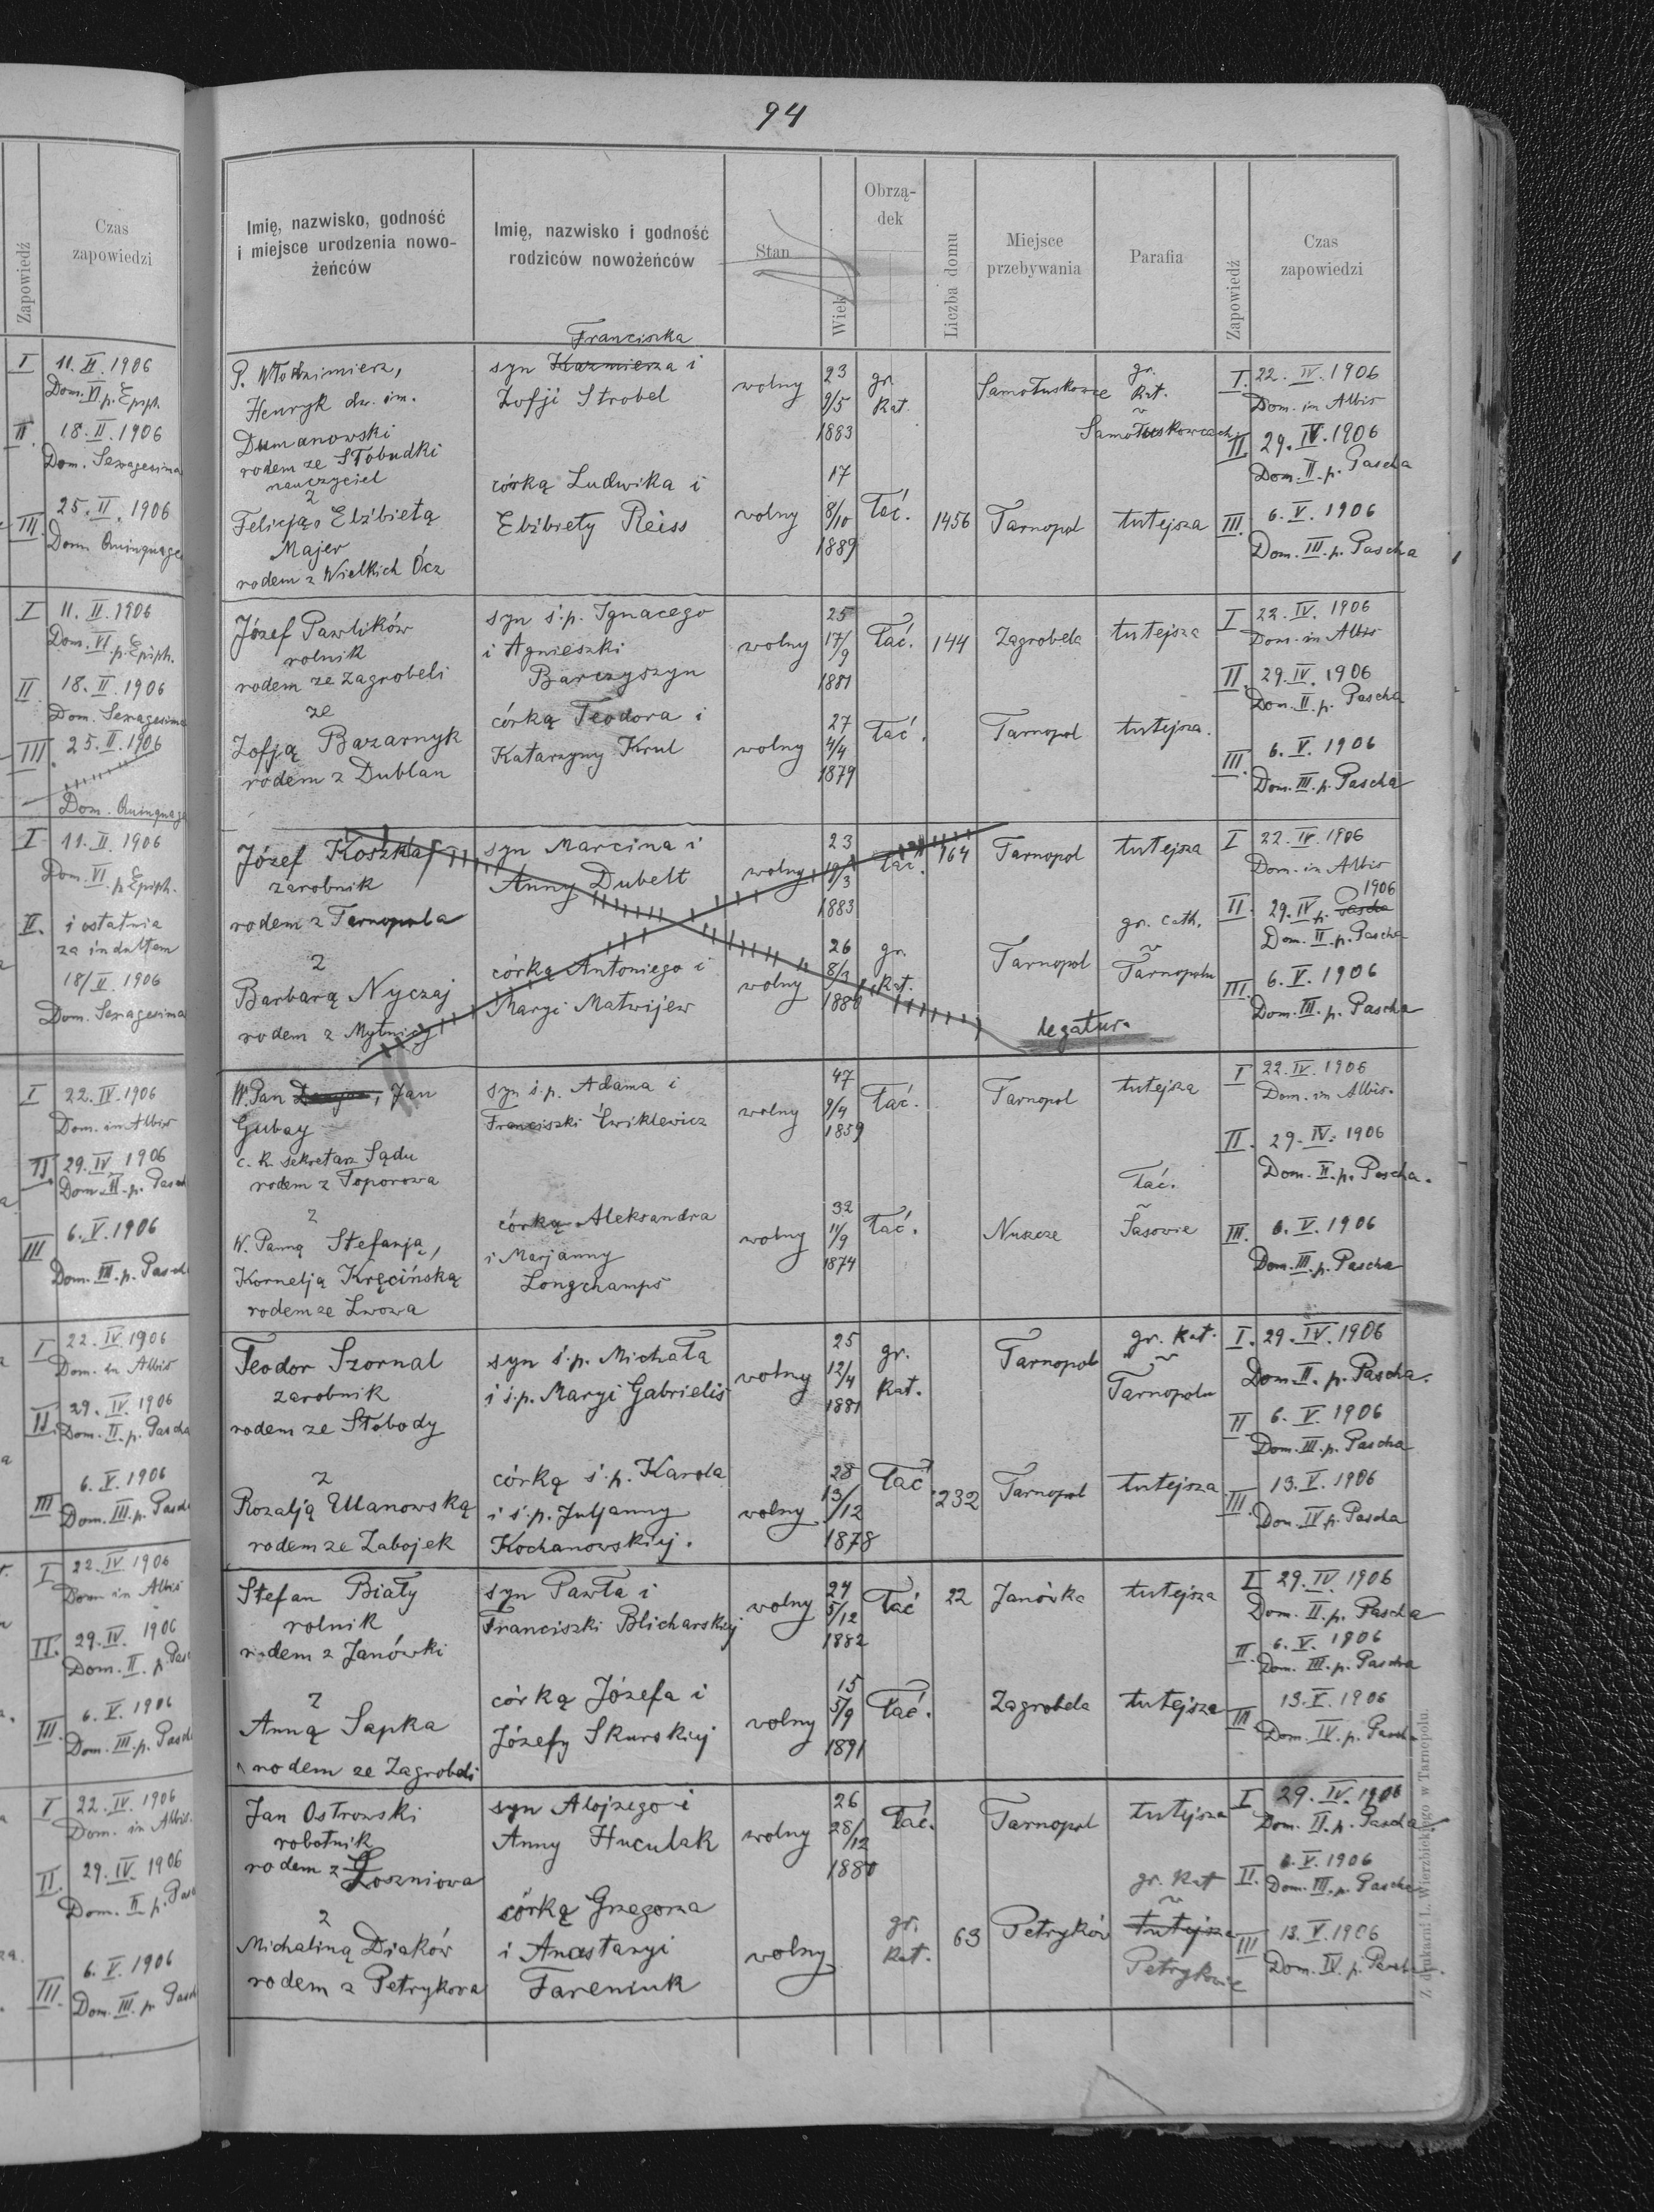 Zapowiedź
Czas
zapowiedzi
I
11. II. 1906
Dom. VI p. Epiph.
II.
18. II. 1906
Dom. Sexagesima
III.
25. II. 1906
Dom. Quinquage
I
11. II. 1906
Dom. VI. p. Epiph.
II
18. II. 1906
Dom. Sexagesima
III.
25. II. 1906
Dom. Quinquage
I
11. II. 1906
Dom. VI p. Epiph.
II.
i ostatnia
za indultem
18/II. 1906
Dom. Sexagesima
I
22. IV. 1906
Dom. in Albis
II.
29. IV. 1906
Dom. II. p. Pasch
III
6. V. 1906
Dom. III. p. Pasch
I
22. IV. 1906
Dom. in Albis
II.
29. IV. 1906
Dom. II. p. Pascha
III
6. V. 1906
Dom. III. p. Pasch
I
22. IV 1906
Dom in Albis
II.
29. IV. 1906
Dom. II. p. Pas
III.
6. V. 1906
Dom. III. p. Pasch
I
22. IV. 1906
Dom. in Albis.
II.
29. IV. 1906
Dom. II p. Pas
III.
6. V. 1906
Dom. III. p. Pasch
94
Imię, nazwisko, godność
i miejsce urodzenia nowo-
żeńców
Imię, nazwisko i godność
rodziców nowożeńców
Stan
Wiek
Obrzą-
dek
Liczba domu
Miejsce
przebywania
Parafia
Zapowiedź
Czas
zapowiedzi
P. Włodzimierz,
Henryk dw. im.
Dumanowski
rodem ze Słobudki
nauczyciel
Franciszka
syn Kazmierza i
Zofji Strobel
wolny
23
9/5
1883
gr.
Kat.
Samołuskowce
gr.
Kat.
w
Samołuskowcach
I. 22. IV. 1906
Dom. in Albis
II. 29. IV. 1906
Dom. II. p. Pascha
z
Felicją, Elżbietą
Majer
rodem z Wielkich Ócz
córką Ludwika i
Elżbiety Reiss
wolny
17
8/10
1889
łać.
1456
Tarnopol
tutejsza
III. 6. V. 1906
Dom. III. p. Pascha
Józef Pawlików
rolnik
rodem ze Zagrobeli
syn ś.p. Ignacego
i Agnieszki
Barczyszyn
wolny
25
17/9
1881
łać.
144
Zagrobela
tutejsza
I 22. IV. 1906
Dom. in Albis
II. 29. IV. 1906
Dom. II. p. Pascha
ze
Zofją Bazarnyk
rodem z Dublan
córką Teodora i
Katarzyny Krul
wolny
27
4/4
1879
łać.
Tarnopol
tutejsza.
III. 6. V. 1906
Dom. III. p. Pascha
Józef Koszkla
zarobnik
rodem z Tarnopola
syn Marcina i
Anny Dubelt
wolny
23
19/3
1883
łać.
164
Tarnopol
tutejsza
I 22. IV. 1906
Dom. in Albis
II. 29. IV. p. Pascha 1906
Dom. II. p. Pascha
z
Barbarą Nyczaj
rodem z Mytnicy
córką Antoniego i
Maryi Matwijew
wolny
26
8/3
1880
gr.
Kat.
Tarnopol
gr. cath.
w
Tarnopolu
III. 6. V. 1906
Dom. III. p. Pascha
legatur.
W. Pan Jan
Gubay
c. k. sekretarz Sądu
rodem z Toporowa
syn ś.p. Adama i
Franciszki Ćwiklewicz
wolny
47
9/4
1859
łać.
Tarnopol
tutejsza
I 22. IV. 1906
Dom. in Albis.
II. 29. IV. 1906
Dom. II. p. Pascha.
z
W. Panną Stefanją,
Kornelją Kręcińską
rodem ze Lwowa
córką Aleksandra
i Marjanny
Longchamps
wolny
32
11/9
1874
łać.
Nuszcze
łać.
w
Sasowie
III. 6. V. 1906
Dom. III. p. Pascha
Teodor Szornal
zarobnik
rodem ze Słobody
syn ś.p. Michała
i ś.p. Maryi Gabrielis
wolny
25
12/4
1881
gr.
Kat.
Tarnopol
gr. Kat.
w
Tarnopolu
I. 29. IV. 1906
Dom. II. p. Pascha.
II 6. V. 1906
Dom. III. p. Pascha
z
Rozalją Ulanowską
rodem ze Zabojek
córką ś.p. Karola
i ś.p. Juljanny
Kochanowskiej.
wolny
28
13/12
1878
łać
232
Tarnopol
tutejsza
III 13. V. 1906
Dom. IV p. Pascha
Stefan Biały
rolnik
rodem z Janówki
syn Pawła i
Franciszki Blicharskiej
wolny
24
5/12
1882
łać
22
Janówka
tutejsza
I 29. IV. 1906
Dom. II. p. Pascha
II. 6. V. 1906
Dom. III. p. Pascha
z
Anną Sapka
rodem ze Zagrobeli
córką Józefa i
Józefy Skurskiej
wolny
15
5/9
1891
łać.
Zagrobela
tutejsza
III 13. V. 1906
Dom. IV. p. Pascha
Jan Ostrowski
robotnik
rodem z Łoszniowa
syn Alojzego i
Anny Huculak
wolny
26
28/12
1880
łać.
Tarnopol
tutejsza
I 29. IV. 1906
Dom. II. p. Pascha
II. 6. V. 1906
Dom. III. p. Pascha
z
Michaliną Diaków
rodem z Petrykowa
córką Grzegorza
i Anastazyi
Fareniuk
wolny
gr.
Kat.
63
Petryków
gr. Kat
w
tutejsza
Petrykowie
III 13. V. 1906
Dom. IV. p. Pascha.
Z drukarni L. Wierzbickiego w Tarnopolu.